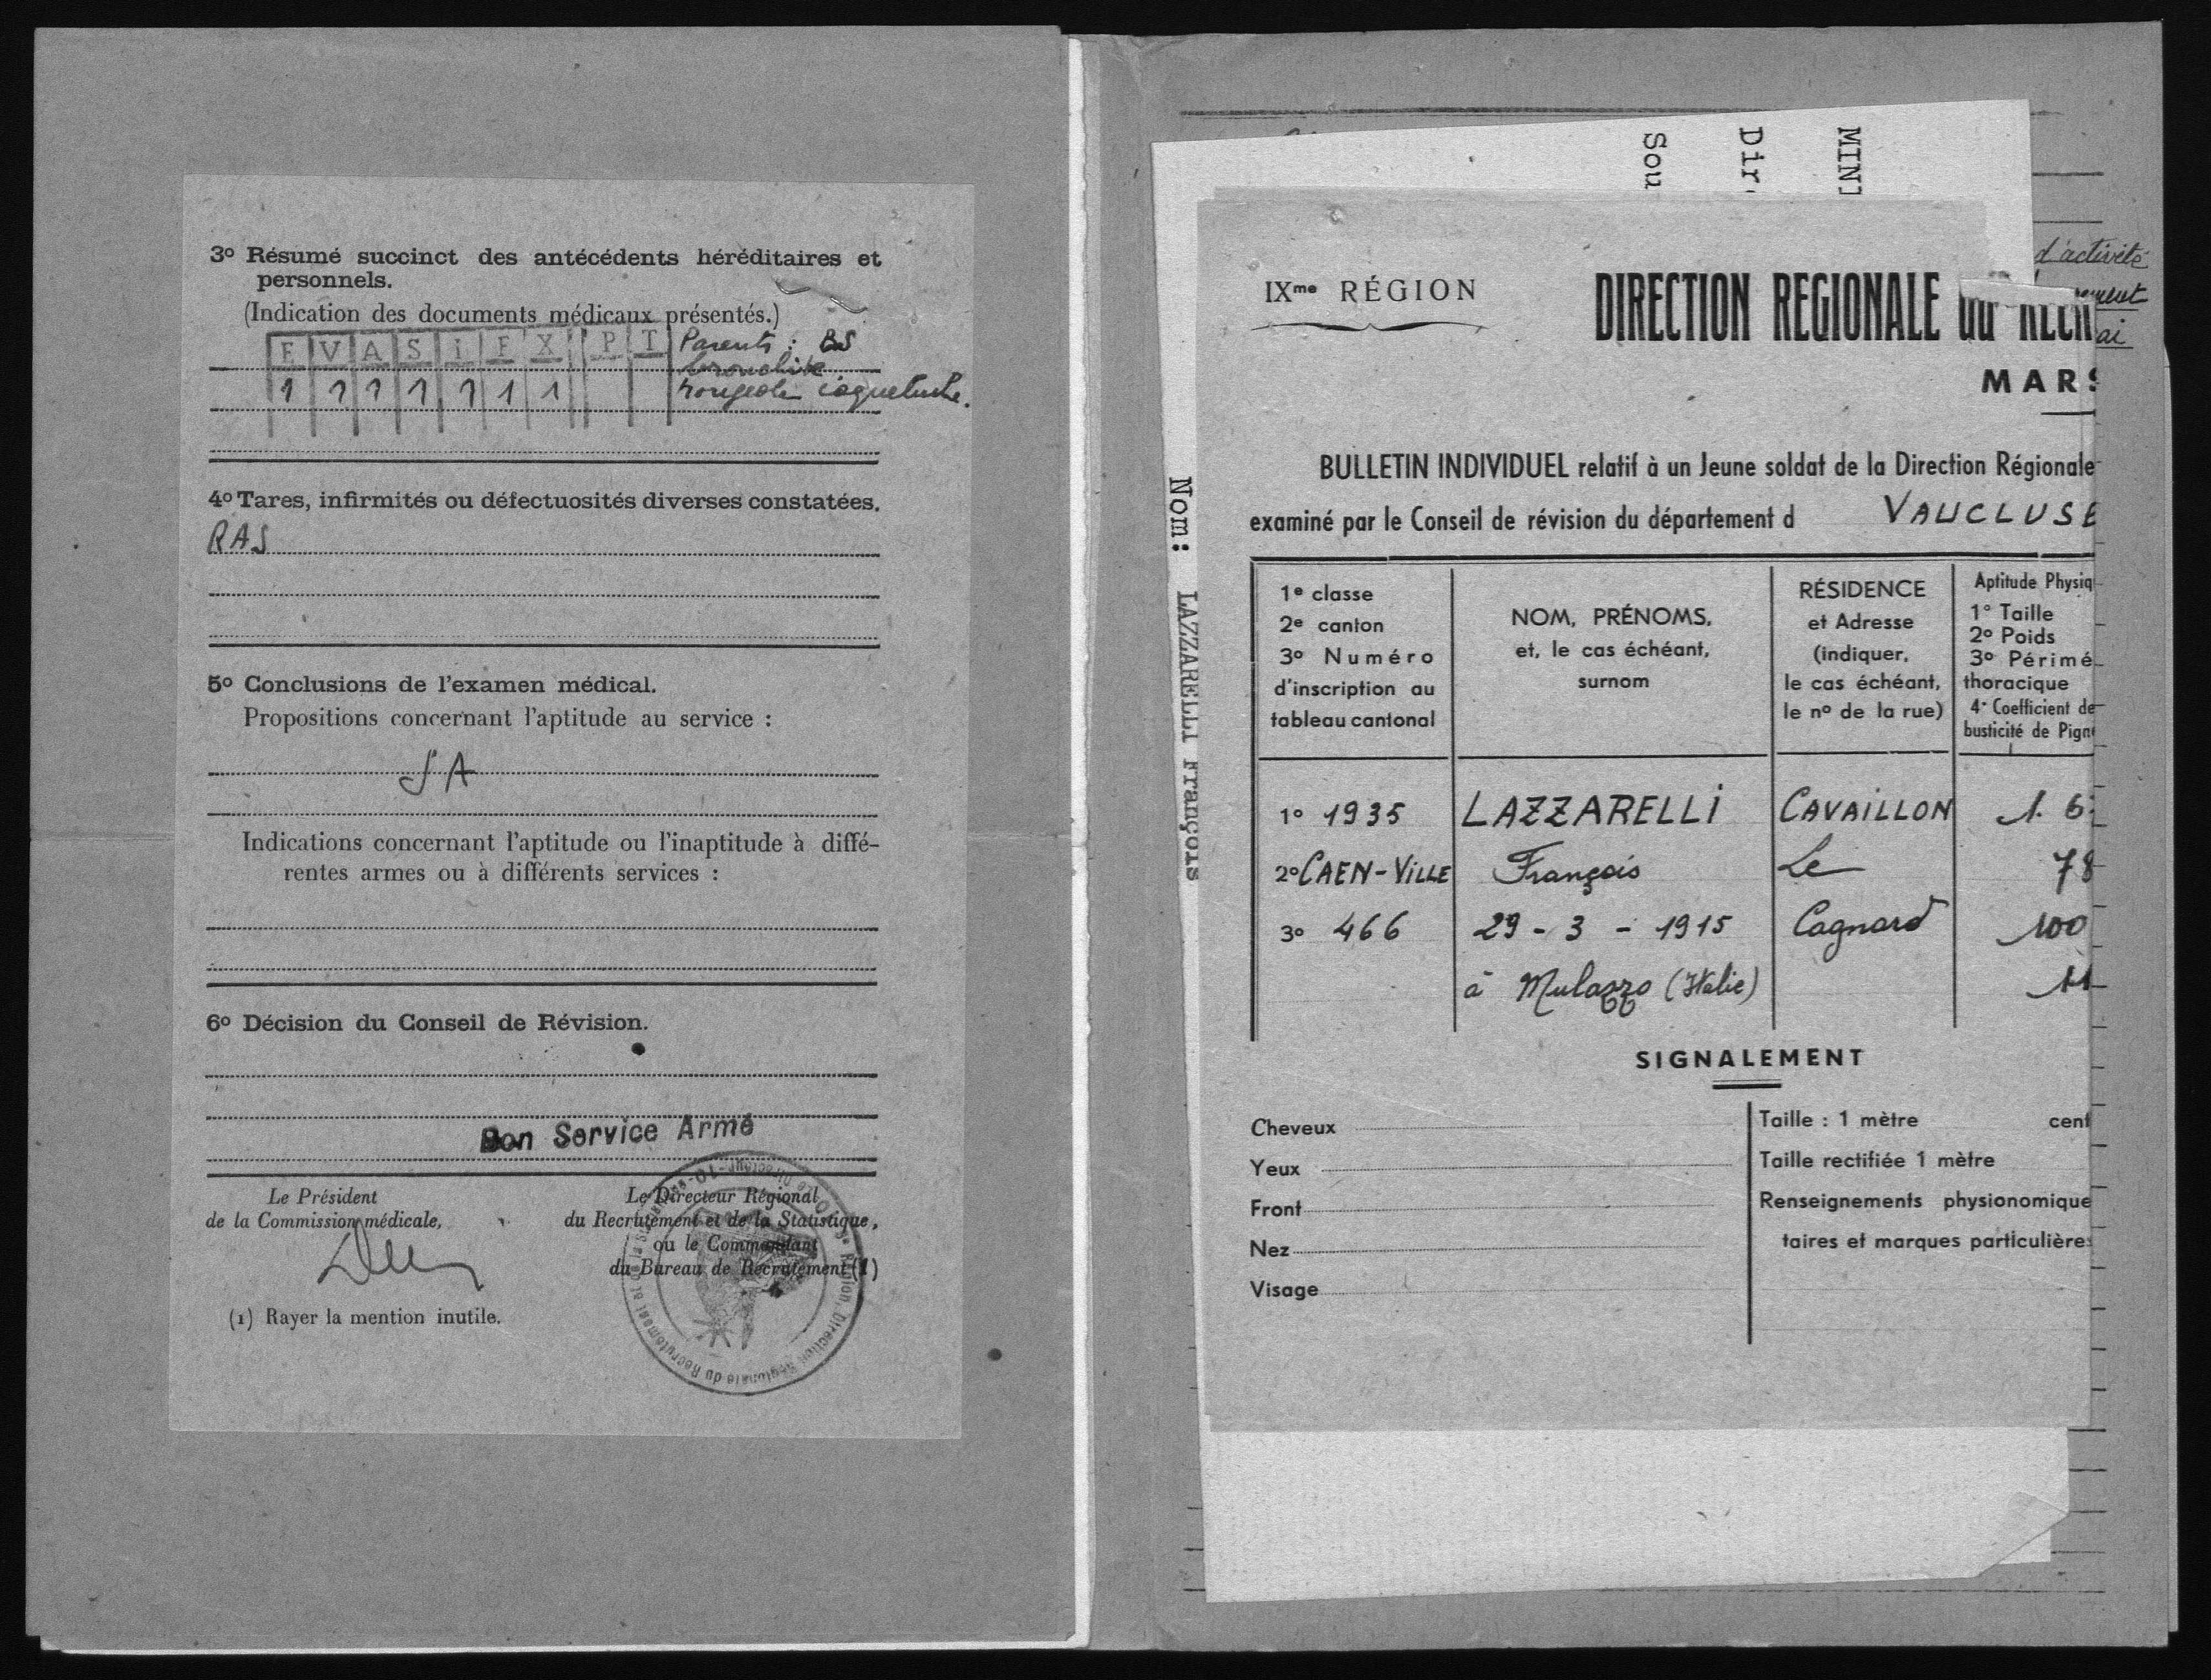 3º Résumé succinct des antécédents héréditaires et
personnels.
(Indication des documents médicaux présentés.)
E V A S I F X P T Parents : BS
bronchite
1 1 1 1 1 1 1 rougeole coqueluche.
4º Tares, infirmités ou défectuosités diverses constatées.
RAS
5º Conclusions de l'examen médical.
Propositions concernant l'aptitude au service :
SA
Indications concernant l'aptitude ou l'inaptitude à diffé-
rentes armes ou à différents services :
6º Décision du Conseil de Révision.
Bon Service Armé
Le Président
de la Commission médicale,
Le Directeur Régional
du Recrutement et de la Statistique,
ou le Commandant
du Bureau de Recrutement (1)
(1) Rayer la mention inutile.
MINI
Dir
Sou
Nom: LAZZARELLI François
d'activité
IXme RÉGION
DIRECTION REGIONALE du RECR
MARS
BULLETIN INDIVIDUEL relatif à un Jeune soldat de la Direction Régionale
examiné par le Conseil de révision du département d VAUCLUSE
1e classe
2e canton
3º Numéro
d'inscription au
tableau cantonal
NOM, PRÉNOMS,
et, le cas échéant,
surnom
RÉSIDENCE
et Adresse
(indiquer,
le cas échéant,
le nº de la rue)
Aptitude Physiq
1º Taille
2º Poids
3º Périmè
thoracique
4º Coefficient de
busticité de Pign
1º 1935 LAZZARELLI CAVAILLON 1. 6
2º CAEN-VILLE François Le 78
3º 466 29 - 3 - 1915 Cagnard 100
à Mulazzo (Italie) 11
SIGNALEMENT
Cheveux
Yeux
Front
Nez
Visage
Taille : 1 mètre cent
Taille rectifiée 1 mètre
Renseignements physionomique
taires et marques particulières